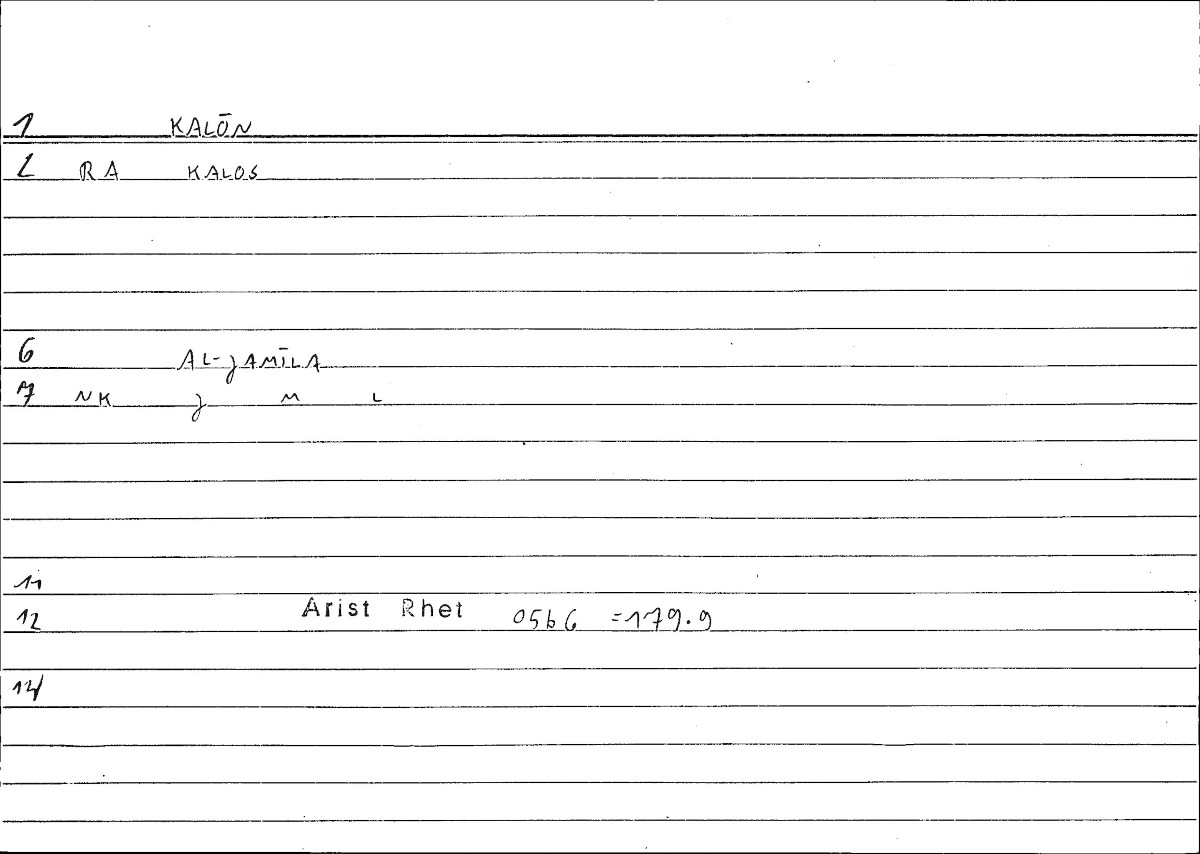 1 KALŌN
2 RA KALOS
6 AL-JAMĪLA
7 NK J M L
11
12 Arist Rhet 05b6 =179.9
14